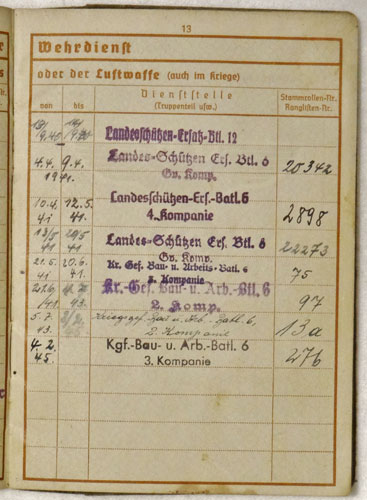 13
Wehrdienst
oder der Luftwaffe (auch im Kriege)
von
bis
Dienststelle
(Truppenteil usw.)
Stammrollen-Nr.
Ranglisten-Nr.
Landesschützen-Ersatz-Btl. 12
4.4. 9.4. Landes-Schützen Ers. Btl. 6 20342
1941. Gv. Komp.
10.4. 12.5. Landesschützen-Ers.-Batl. 6
41 41. 4. Kompanie 2898
13/5 20/5 Landes-Schützen Ers. Btl. 6 22273
41 41 Gv. Komp.
21.5. 20.6. Kr. Gef. Bau- u. Arbeits-Batl. 6 75
41 41. Kompanie
Kr.-Gef. Bau- u. Arb.-Btl. 6
43. 2. Komp. 97
5.7. Kriegsgef. Bau u. Arb. Batl. 6, 13a
43. 2. Kompanie
4.2. Kgf.-Bau- u. Arb.-Batl. 6 276
45. 3. Kompanie